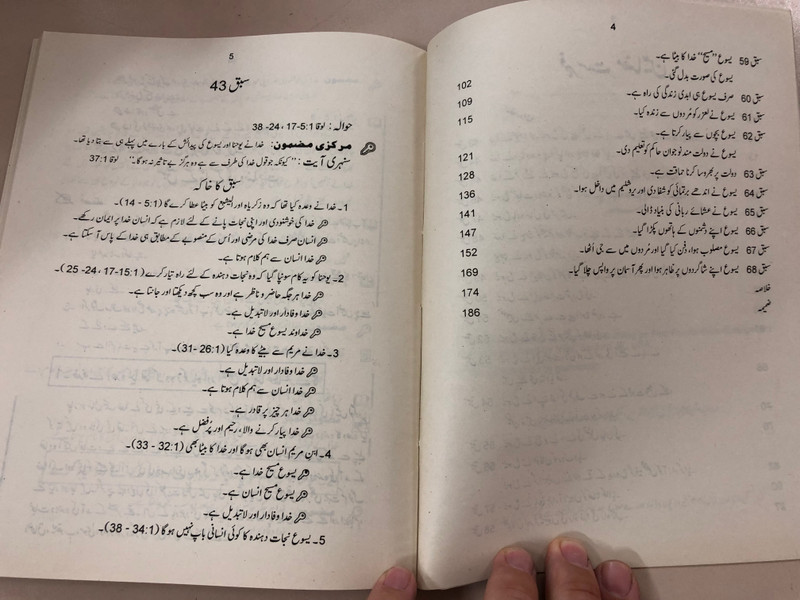 4
سبق 59 یسوع "مسیح" خدا کا بیٹا ہے۔
یسوع کی صورت بدل گئی۔ 102
سبق 60 صرف یسوع ہی ابدی زندگی کی راہ ہے۔ 109
سبق 61 یسوع نے لعزر کو مُردوں سے زندہ کیا۔ 115
سبق 62 یسوع بچوں سے پیار کرتا ہے۔
یسوع نے دولت مند نوجوان حاکم کو تعلیم دی۔ 121
سبق 63 دولت پر بھروسا کرنا حماقت ہے۔ 128
سبق 64 یسوع نے اندھے برتمائی کو شفا دی اور یروشلیم میں داخل ہوا۔ 136
سبق 65 یسوع نے عشائے ربانی کی بنیاد ڈالی۔ 141
سبق 66 یسوع اپنے دشمنوں کے ہاتھوں پکڑا گیا۔ 147
سبق 67 یسوع مصلوب ہوا، دفن کیا گیا اور مُردوں میں سے جی اُٹھا۔ 152
سبق 68 یسوع اپنے شاگردوں پر ظاہر ہوا اور پھر آسمان پر واپس چلا گیا۔ 169
خلاصہ 174
ضمیمہ 186
5
سبق 43
حوالہ: لوقا 1:5-17، 24-38
مرکزی مضمون: خدا نے یوحنا اور یسوع کی پیدائش کے بارے میں پہلے ہی سے بتا دیا تھا۔
سنہری آیت: "کیونکہ جو قول خدا کی طرف سے ہے وہ ہرگز بے تاثیر نہ ہوگا۔" لوقا 37:1
سبق کا خاکہ
1۔ خدا نے وعدہ کیا تھا کہ وہ زکریاہ اور الیشبع کو بیٹا عطا کرے گا (5:1 - 14)۔
خدا کی خوشنودی اور اپنی نجات پانے کے لئے لازم ہے کہ انسان خدا پر ایمان رکھے۔
انسان صرف خدا کی مرضی اور اُس کے منصوبے کے مطابق ہی خدا کے پاس آ سکتا ہے۔
خدا انسان سے ہم کلام ہوتا ہے۔
2۔ یوحنا کو یہ کام سونپا گیا کہ وہ نجات دہندہ کے لئے راہ تیار کرے (15:1-17، 24- 25)۔
خدا ہر جگہ حاضر و ناظر ہے اور وہ سب کچھ دیکھتا اور جانتا ہے۔
خدا وفادار اور لاتبدیل ہے۔
خداوند یسوع مسیح خدا ہے۔
3۔ خدا نے مریم سے بیٹے کا وعدہ کیا (26:1 -31)۔
خدا وفادار اور لاتبدیل ہے۔
خدا انسان سے ہم کلام ہوتا ہے۔
خدا ہر چیز پر قادر ہے۔
خدا پیار کرنے والا، رحیم اور پُرفضل ہے۔
4۔ ابنِ مریم انسان بھی ہوگا اور خدا کا بیٹا بھی (32:1 - 33)۔
یسوع مسیح خدا ہے۔
یسوع مسیح انسان ہے۔
خدا وفادار اور لاتبدیل ہے۔
5۔ یسوع نجات دہندہ کا کوئی انسانی باپ نہیں ہوگا (34:1 - 38)۔